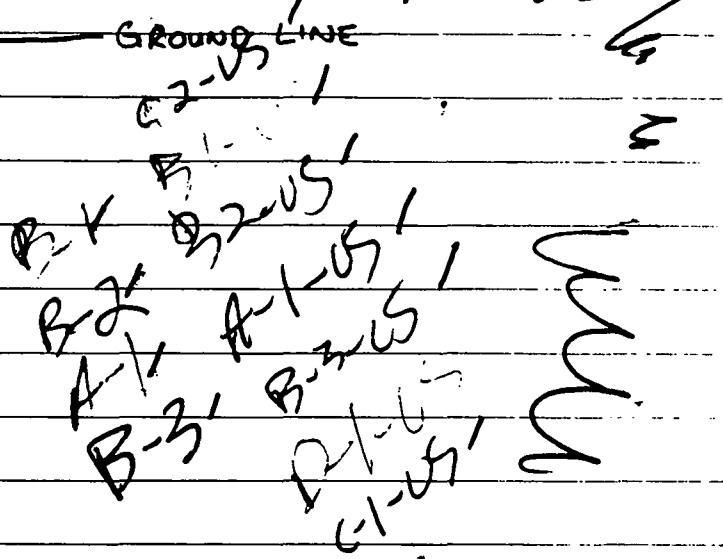 GROUND LINE
C2-US
B2-US'
B-1
B-2'
A-1-US'
A-1'
B-3-US'
B-3'
D-1-US
C-1-US'